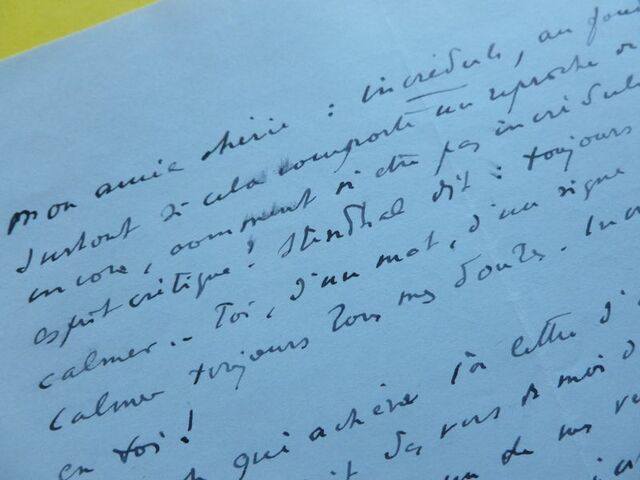 mon amie chérie : incrédule, au fond
surtout si cela comporte un reproche
encore, comment ne être pas incrédule
esprit critique! Stendhal dit : toujours
calmer.. Toi, d'un mot, d'un signe
calmer toujours tous mes doutes.
en toi!
qui achève ta lettre d'
des vers de moi
de mes